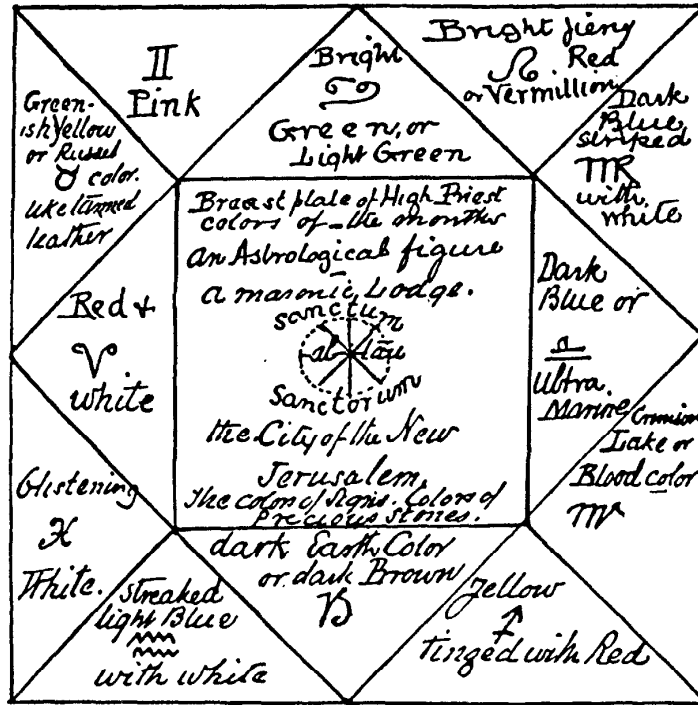 II
Pink
Bright
♋
Green, or
Light Green
Bright fiery
♌ Red
or Vermillion
Dark
Blue
striped
♍
with
white
Green-
ish Yellow
or Russet
♉ color.
like tanned
leather
Breast plate of High Priest
colors of the months
an Astrological figure
a masonic Lodge.
sanctum
Sanctorum
the City of the New
Jerusalem,
The colors of Signs. Colors of
Precious stones.
Red +
♈
white
Dark
Blue or
♎
Ultra
Marine
Crimson
Lake or
Blood color
♏
Glistening
♓
White.
streaked
light Blue
♒
with white
dark Earth Color
or dark Brown
♑
Yellow
♐
tinged with Red